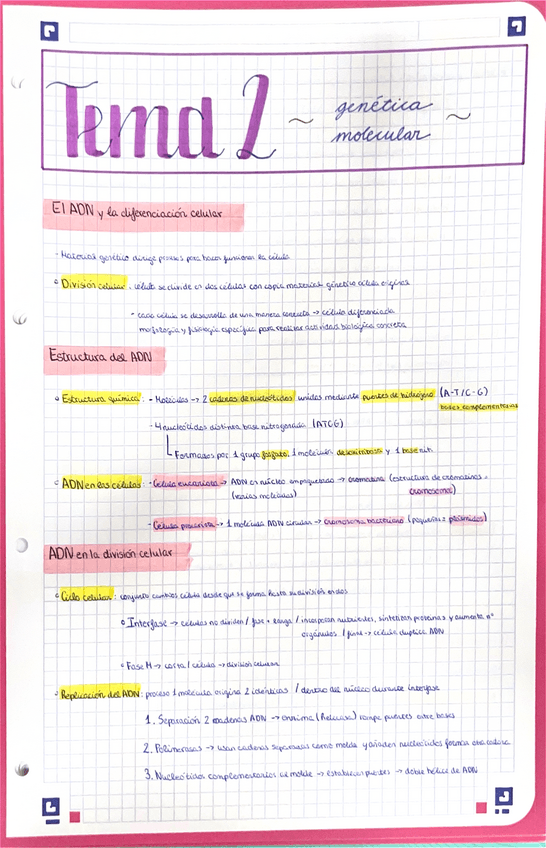 Tema 2 ~ genética molecular ~
El ADN y la diferenciación celular
- Material genético dirige procesos para hacer funcionar la célula
División celular: célula se divide en dos células con copia material genético célula origina
- cada célula se desarrolla de una manera concreta → célula diferenciada
morfología y fisiología específica para realizar actividad biológica concreta
Estructura del ADN
Estructura química: - Moléculas → 2 cadenas de nucleótidos unidas mediante puentes de hidrógeno (A-T/C-G)
bases complementarias
- 4 nucleótidos distinta base nitrogenada (ATCG)
Formados por 1 grupo fosfato, 1 molécula desoxirribosa y 1 base nitr.
ADN en las células: - Célula eucariota → ADN en núcleo empaquetado → cromatina (estructura de cromatina =
(varias moléculas) cromosoma)
- Célula procariota → 1 molécula ADN circular → cromosoma bacteriano (pequeños = plásmidos)
ADN en la división celular
Ciclo celular: conjunto cambios célula desde que se forma hasta su división en dos
Interfase → células no dividen / fase + larga / incorporan nutrientes, sintetizan proteínas y aumenta nº
orgánulos / final → célula duplica ADN
Fase M → corta / célula → división celular
Replicación del ADN: proceso 1 molécula origina 2 idénticas / dentro del núcleo durante interfase
1. Separación 2 cadenas ADN → enzima (Helicasa) rompe puentes entre bases
2. Polimerasas → usan cadenas separadas como molde y añaden nucleótidos forma otra cadena
3. Nucleótidos complementarios al molde → establecen puentes → doble hélice de ADN